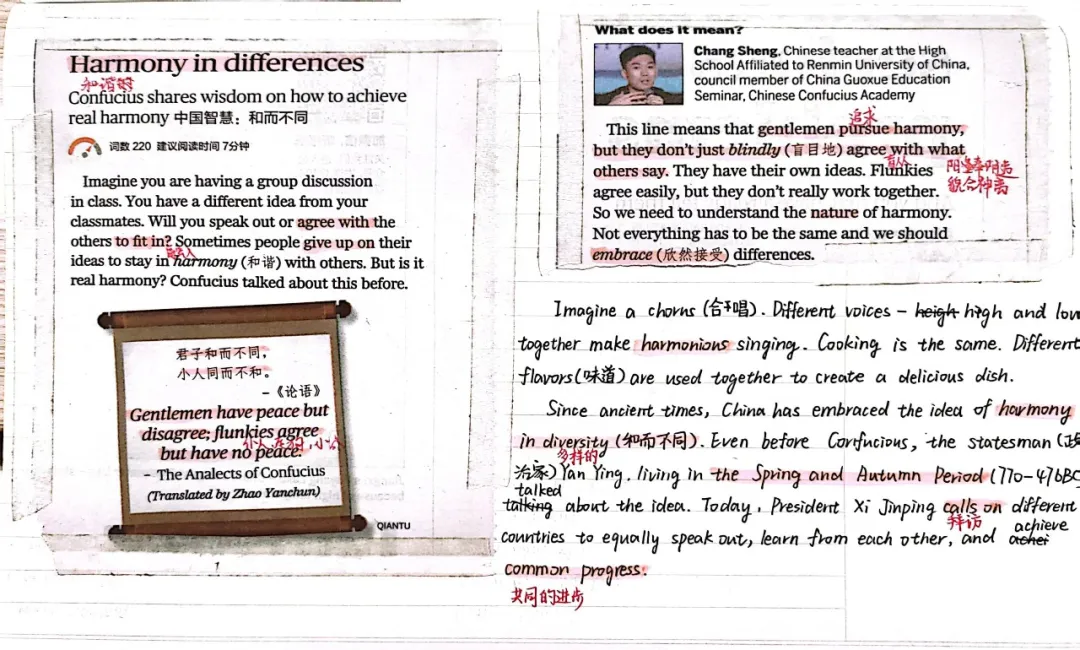 Harmony in differences
和谐的
Confucius shares wisdom on how to achieve
real harmony 中国智慧：和而不同
词数 220 建议阅读时间 7分钟
Imagine you are having a group discussion
in class. You have a different idea from your
classmates. Will you speak out or agree with the
others to fit in? Sometimes people give up on their
融入
ideas to stay in harmony (和谐) with others. But is it
real harmony? Confucius talked about this before.
君子和而不同，
小人同而不和。
–《论语》
Gentlemen have peace but
disagree; flunkies agree
but have no peace.
– The Analects of Confucius
(Translated by Zhao Yanchun)
QIANTU
What does it mean?
Chang Sheng, Chinese teacher at the High
School Affiliated to Renmin University of China,
council member of China Guoxue Education
Seminar, Chinese Confucius Academy
追求
This line means that gentlemen pursue harmony,
but they don't just blindly (盲目地) agree with what
others say. They have their own ideas. Flunkies
阳奉阴违
agree easily, but they don't really work together.
貌合神离
So we need to understand the nature of harmony.
Not everything has to be the same and we should
embrace (欣然接受) differences.
Imagine a chorus (合唱). Different voices – heigh high and low
together make harmonious singing. Cooking is the same. Different
flavors (味道) are used together to create a delicious dish.
Since ancient times, China has embraced the idea of harmony
in diversity (和而不同). Even before Confucious, the statesman (政
多样的
治家) Yan Ying. living in the Spring and Autumn Period (770-476BC
talked
talking about the idea. Today, President Xi Jinping calls on different
拜访
achieve
countries to equally speak out, learn from each other, and achei
common progress.
共同的进步